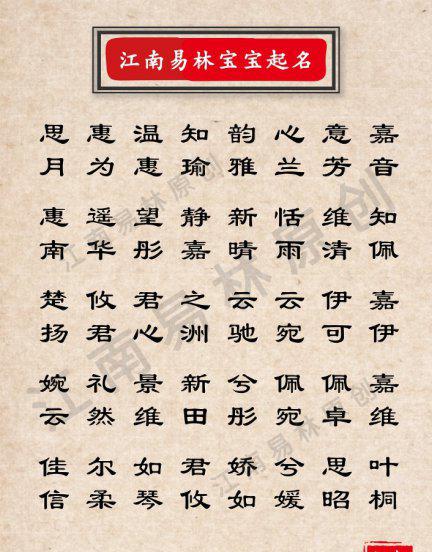 江南易林宝宝起名
思 惠 温 知 韵 心 意 嘉
月 为 惠 瑜 雅 兰 芳 音
惠 遥 望 静 新 恬 维 知
南 华 彤 嘉 晴 雨 清 佩
楚 攸 君 之 云 云 伊 嘉
扬 君 心 洲 驰 宛 可 伊
婉 礼 景 新 兮 佩 佩 嘉
云 然 维 田 彤 宛 卓 维
佳 尔 如 君 娇 兮 思 叶
信 柔 琴 攸 如 媛 昭 桐
江南易林原创
江南易林原创
江南易林原创